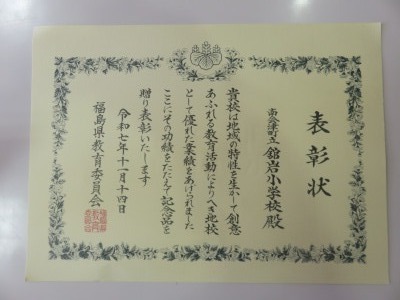 表彰状
南会津町立舘岩小学校殿
貴校は地域の特性を生かして創意
あふれる教育活動によりへき地校
として優れた業績をあげられました
ここにその功績をたたえて記念品を
贈り表彰いたします
令和七年十一月十四日
福島県教育委員会